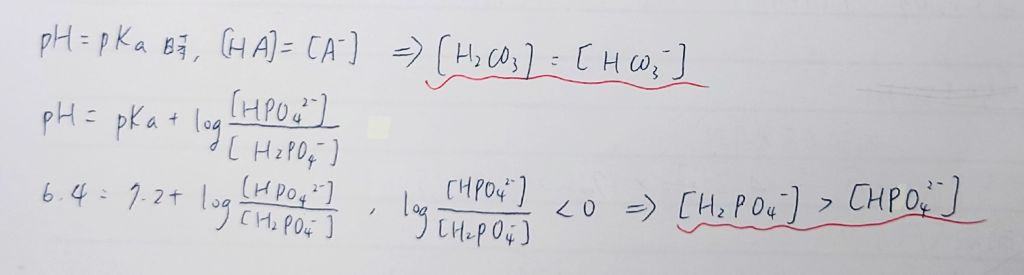 pH = pKa 時, [HA] = [A⁻] ⇒ [H₂CO₃] = [HCO₃⁻]
pH = pKa + log [HPO₄²⁻] / [H₂PO₄⁻]
6.4 = 7.2 + log [HPO₄²⁻] / [H₂PO₄⁻] , log [HPO₄²⁻] / [H₂PO₄⁻] < 0 ⇒ [H₂PO₄⁻] > [HPO₄²⁻]